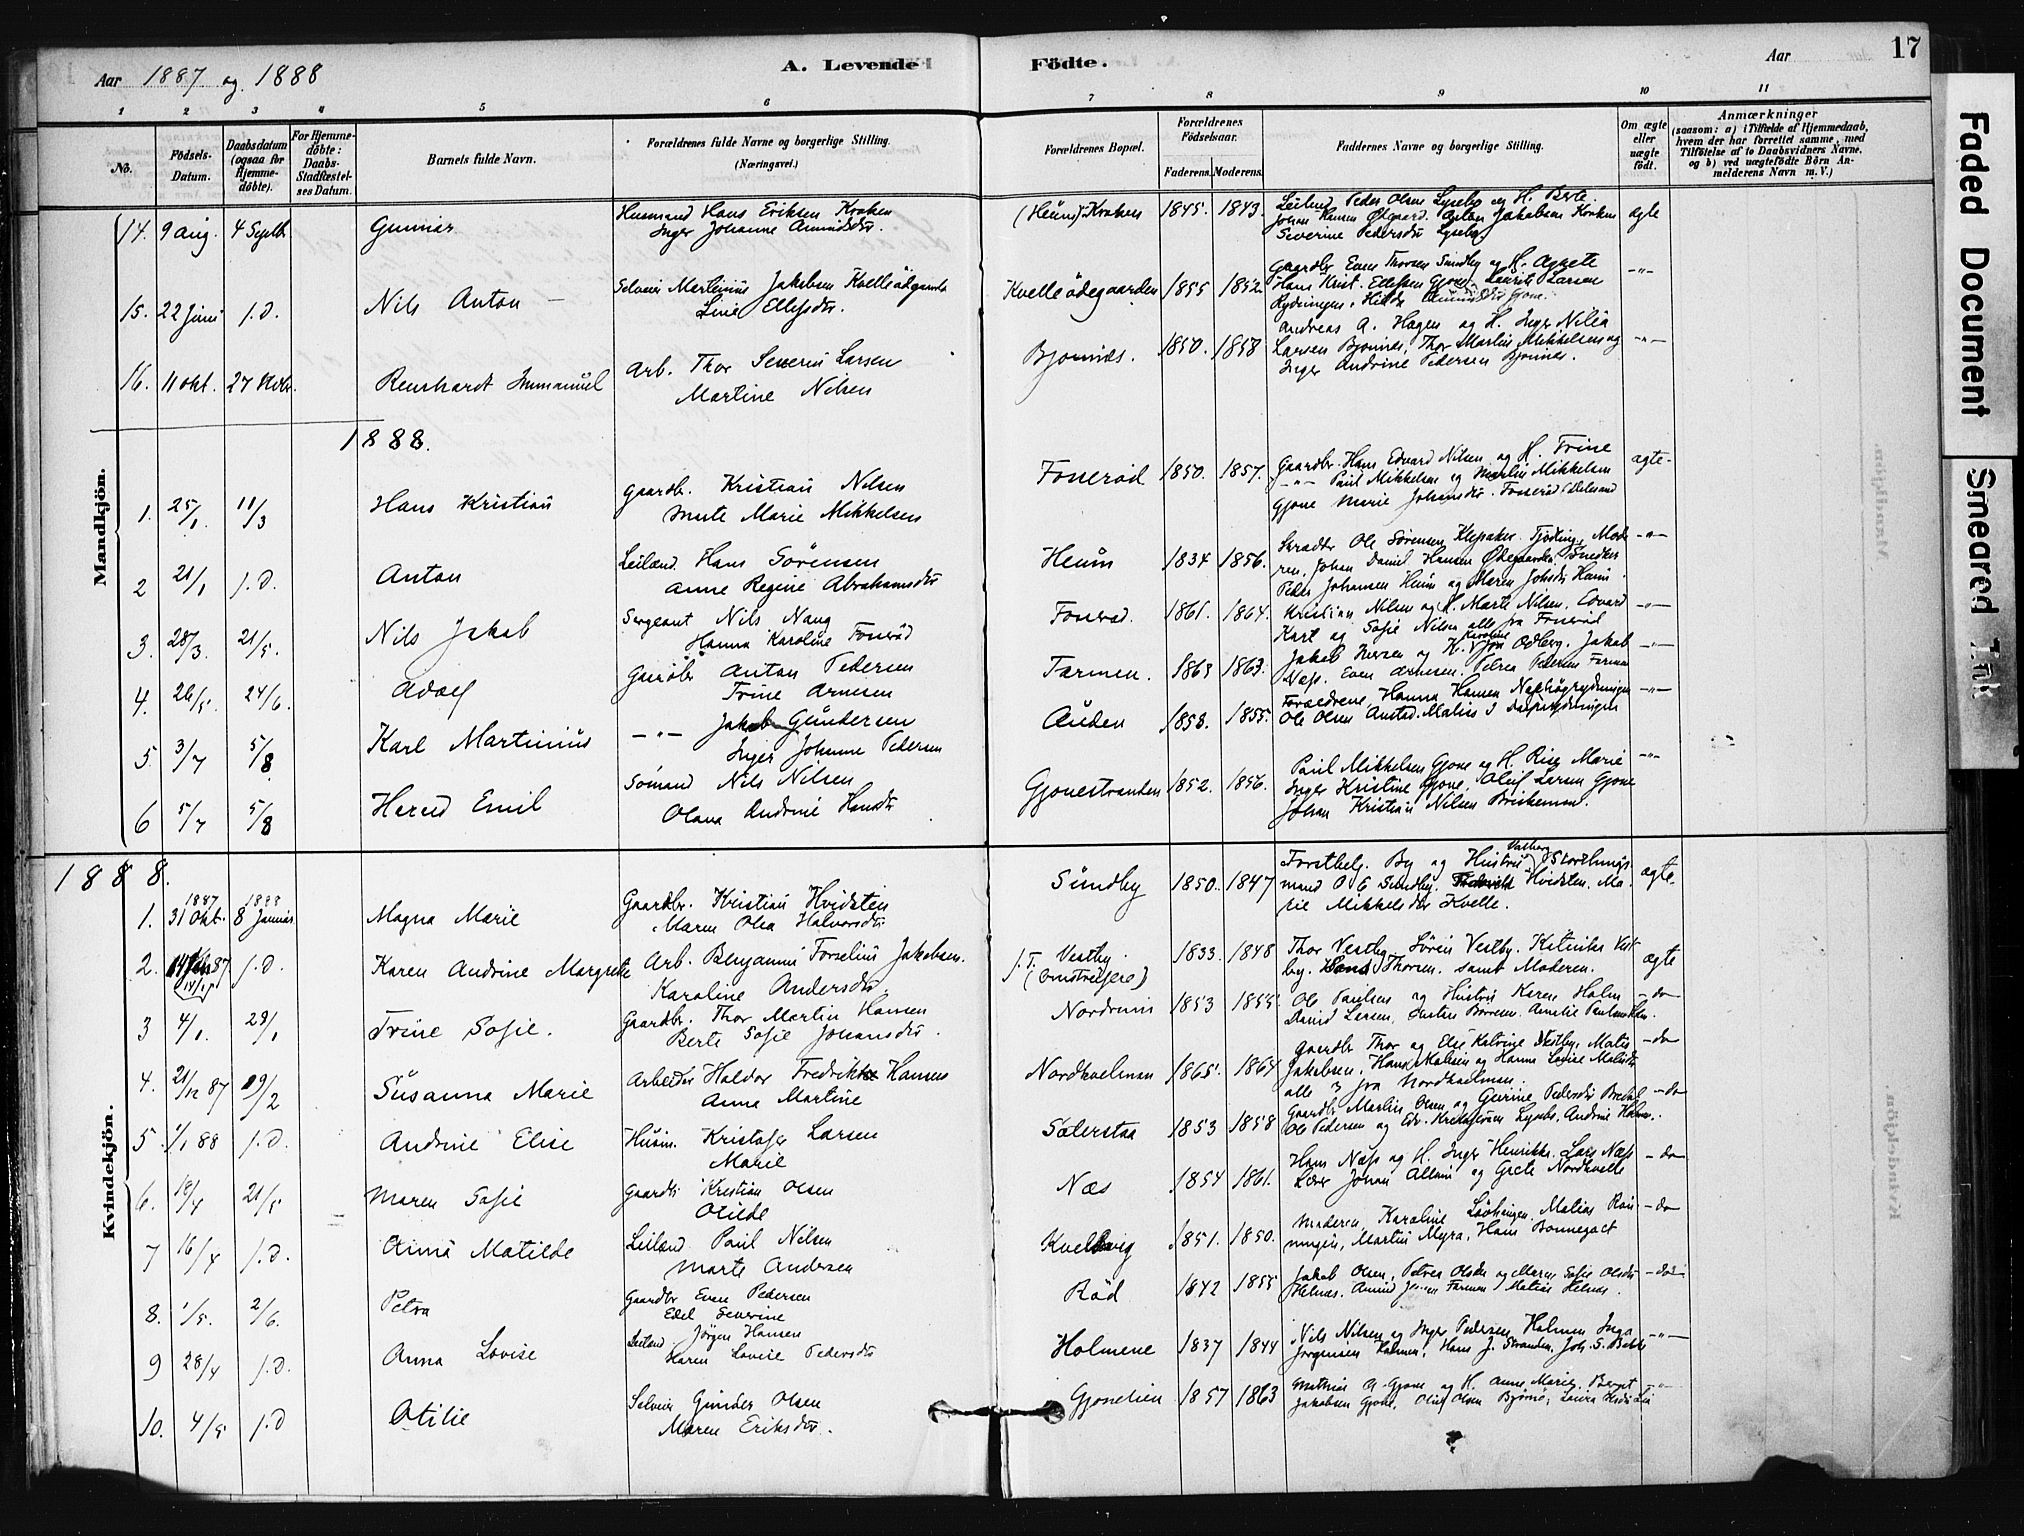 Aar 1887 og 1888
A. Levende Födte.
Aar
17
1 2 3 4 5 6 7 8 9 10 11
No.
Födsels-Datum.
Daabsdatum (ogsaa for Hjemme-döbte).
For Hjemme-döbte: Daabs-Stadfæstel-ses Datum.
Barnets fulde Navn.
Forældrenes fulde Navne og borgerlige Stilling. (Næringsvei.)
Forældrenes Bopæl.
Forældrenes Födselsaar.
Faderens. Moderens.
Faddernes Navne og borgerlige Stilling.
Om ægte eller uægte födt.
Anmærkninger
(saasom: a) i Tilfælde af Hjemmedaab,
hvem der har forrettet samme, med
Tilföielse af to Daabsvidners Navne,
og b) ved uægtefödte Börn An-
melderens Navn m. V.)
Mandkjön.
14. 9 Aug. 4 Septb. Gunnar Husmand Hans Eriksen Kraken (Heum) Kraken 1845. 1843. Leilend. Peder Olsen Lysebo og H. Berte.
Inger Johanne Amundsdtr. Johan Hansen Ødegaard. Anton Jakobsen Kraken ægte
Severine Pedersdtr Lysebo
15. 22 Juni s.d. Nils Anton Selveier Martinius Jakobsen Kvelleödegaarden Kvelleödegaarden 1855 1852 Gaardbr Even Thorsen Sundby og H. Agnete -"-
Line Ellefsdtr. Hans Krist. Ellefsen Gjone. Laurits Larsen
Rydningen, Hilda Amundsdtr Gjone.
16. 11 Okt. 27 Novbr. Reinhardt Immanuel Arb. Thor Severin Larsen Bjonnes. 1850. 1858 Andreas A. Hagen og H. Inger Nilia
Martine Nilsen Larsen Bjonnes, Thor Martin Mikkelsen og -"-
Inger Andrine Pedersen Bjonnes.
1888.
1. 25/1 11/3 Hans Kristian Gaardbr. Kristian Nilsen Fonerød 1850. 1857. Gaardbr. Hans Edvard Nilsen og H. Trine ægte-
Marte Marie Mikkelsen -"- Paul Mikkelsen og Martin Mikkelsen
Gjone Marie Johansdtr. Fonerød
2 21/1 s.d. Anton Leilænd. Hans Sörensen Heum 1834 1856. Skradder Ole Sörensen Klepaker Tjödling, Mode- -"-
Anne Regine Abrahamsdtr ren, Johan Daniel Hansen Ødegaarden,
Peder Johansen Heum og Maren Johsdtr Heum.
3. 28/3. 21/5. Nils Jakob Sergeant Nils Nang Fonerød. 1861. 1864. Kristian Nilsen og H. Marte Nilsen, Edvard -"-
Hanna Karoline Fonerød Kart og Sofie Nilsen alle fra Fonerød
4. 26/5. 24/6. Adolf Gaardbr Anton Pedersen Farmen. 1863 1863. Jakob Iversen og H. Karoline Odberg. Jakob -"-
Trine Arnesen Næss. Even Arnesen. Petrea Pedersen Farmen
5. 3/7 5/8 Karl Martinius -"- Jakob Gundersen Auden 1858. 1855. Forældrene, Hanna Hansen Næshögrydningen -"-
Inger Johanne Pedersen Ole Olsen Ansted. Matias J
6 5/7 5/8 Harald Emil Sömand Nils Nilsen Gjonestranden 1852. 1856. Paul Mikkelsen Gjone og H. Rise Marie -"-
Olava Andrine Hansdtr Inger Kristine Gjone, Oluf Larsen Gjone
Johan Kristian Nilsen Briskemoen.
1888.
Kvindekjön.
1. 1887 31 Okt. 1888 8 Januar Magna Marie Gaardbr. Kristian Hvidsten Sundby 1850. 1847 Forstbetj. By og Hustru Valborg, Storthings-
Maren Olea Halvorsdtr mand O G Sundby. Hvidsten. Ma- ægte.
rie Mikkelsdtr Kvelle.
2. 87 s.d. Karen Andrine Margrete Arb. Benjamin Forselius Jakobsen. s.T. Vestby. 1833. 1848 Thor Vestby, Sören Vestby. Katinka Vest- ægte
14/11 Karoline Andersdtr. by. Hans Thorsen. samt Moderen.
3 4/1. 29/1 Trine Sofie. Gaardbr. Thor Martin Hansen Nordrum 1853 1855. Ole Paulsen og Hustru Karen Holm -do
Berte Sofie Johansdtr. David Larsen,
4. 21/12 87 19/2 Susanna Marie Arbeider Haldor Fredrik Hansen Nordkvelmen 1865. 1864 Gaardbr Thor og Else Katrine Vestby, Matis -do
Anna Martine Jakobsen, Hans Matisen og Hanna Lovise Matisdtr
alle 3 fra Nordkvelmen.
5 1/1 88 s.d. Andrine Elise Husm. Kristofer Larsen Sæterstaa 1853 1858 Gaardbr Martin Olsen og Gurine Pedersdtr -do
Marie Ole Pedersen og Edv. Lysebo, Andrine Holmen.
6. 18/4 21/5 Maren Sofie Gaardbr Kristian Olsen Næs 1854 1861. Hans Næss og H. Inger Henrikke. Lars Næss -do
Otilde Lærer Johan Allum og Grete Nordkvelle
7 16/4 s.d. Anna Matilde Leilænd Paul Nilsen 1851. 1850. Moderen, Karoline Lövhaugen, Matias Röu- -do
Marte Andersen ningen, Martin Myra, Hans Bonnegaet
8. 1/5. 2/6. Petra Gaardbr Even Pedersen Rød 1842 1855 Jakob Olsen, Petrea Olsdtr og Maren Sofie Olsdtr -do
Edel Severine Helnæs, Amund Farmen, Matias Helnæs.
9 28/4 s.d. Anna Lovise Leiland Jörgen Hansen Holmene 1837 1844 Nils Nilsen og Inger Pedersen Holmen Inga -"-
Karen Lovise Pedersdtr Jorgensen Holmen, Hans J. Stranden, Joh. S.
10. 4/5 s.d Otilie Selveier Gunder Olsen Gjonelien 1857 1863 Mathias A. Gjone og H. Anne Marie. Bernt -"-
Maren Eriksdtr. Jakobsen Gjone, Oluf Olsen Bjørnø, Laura
Mandkjön.
Kvindekjön.
Faded Document
Smeared Ink